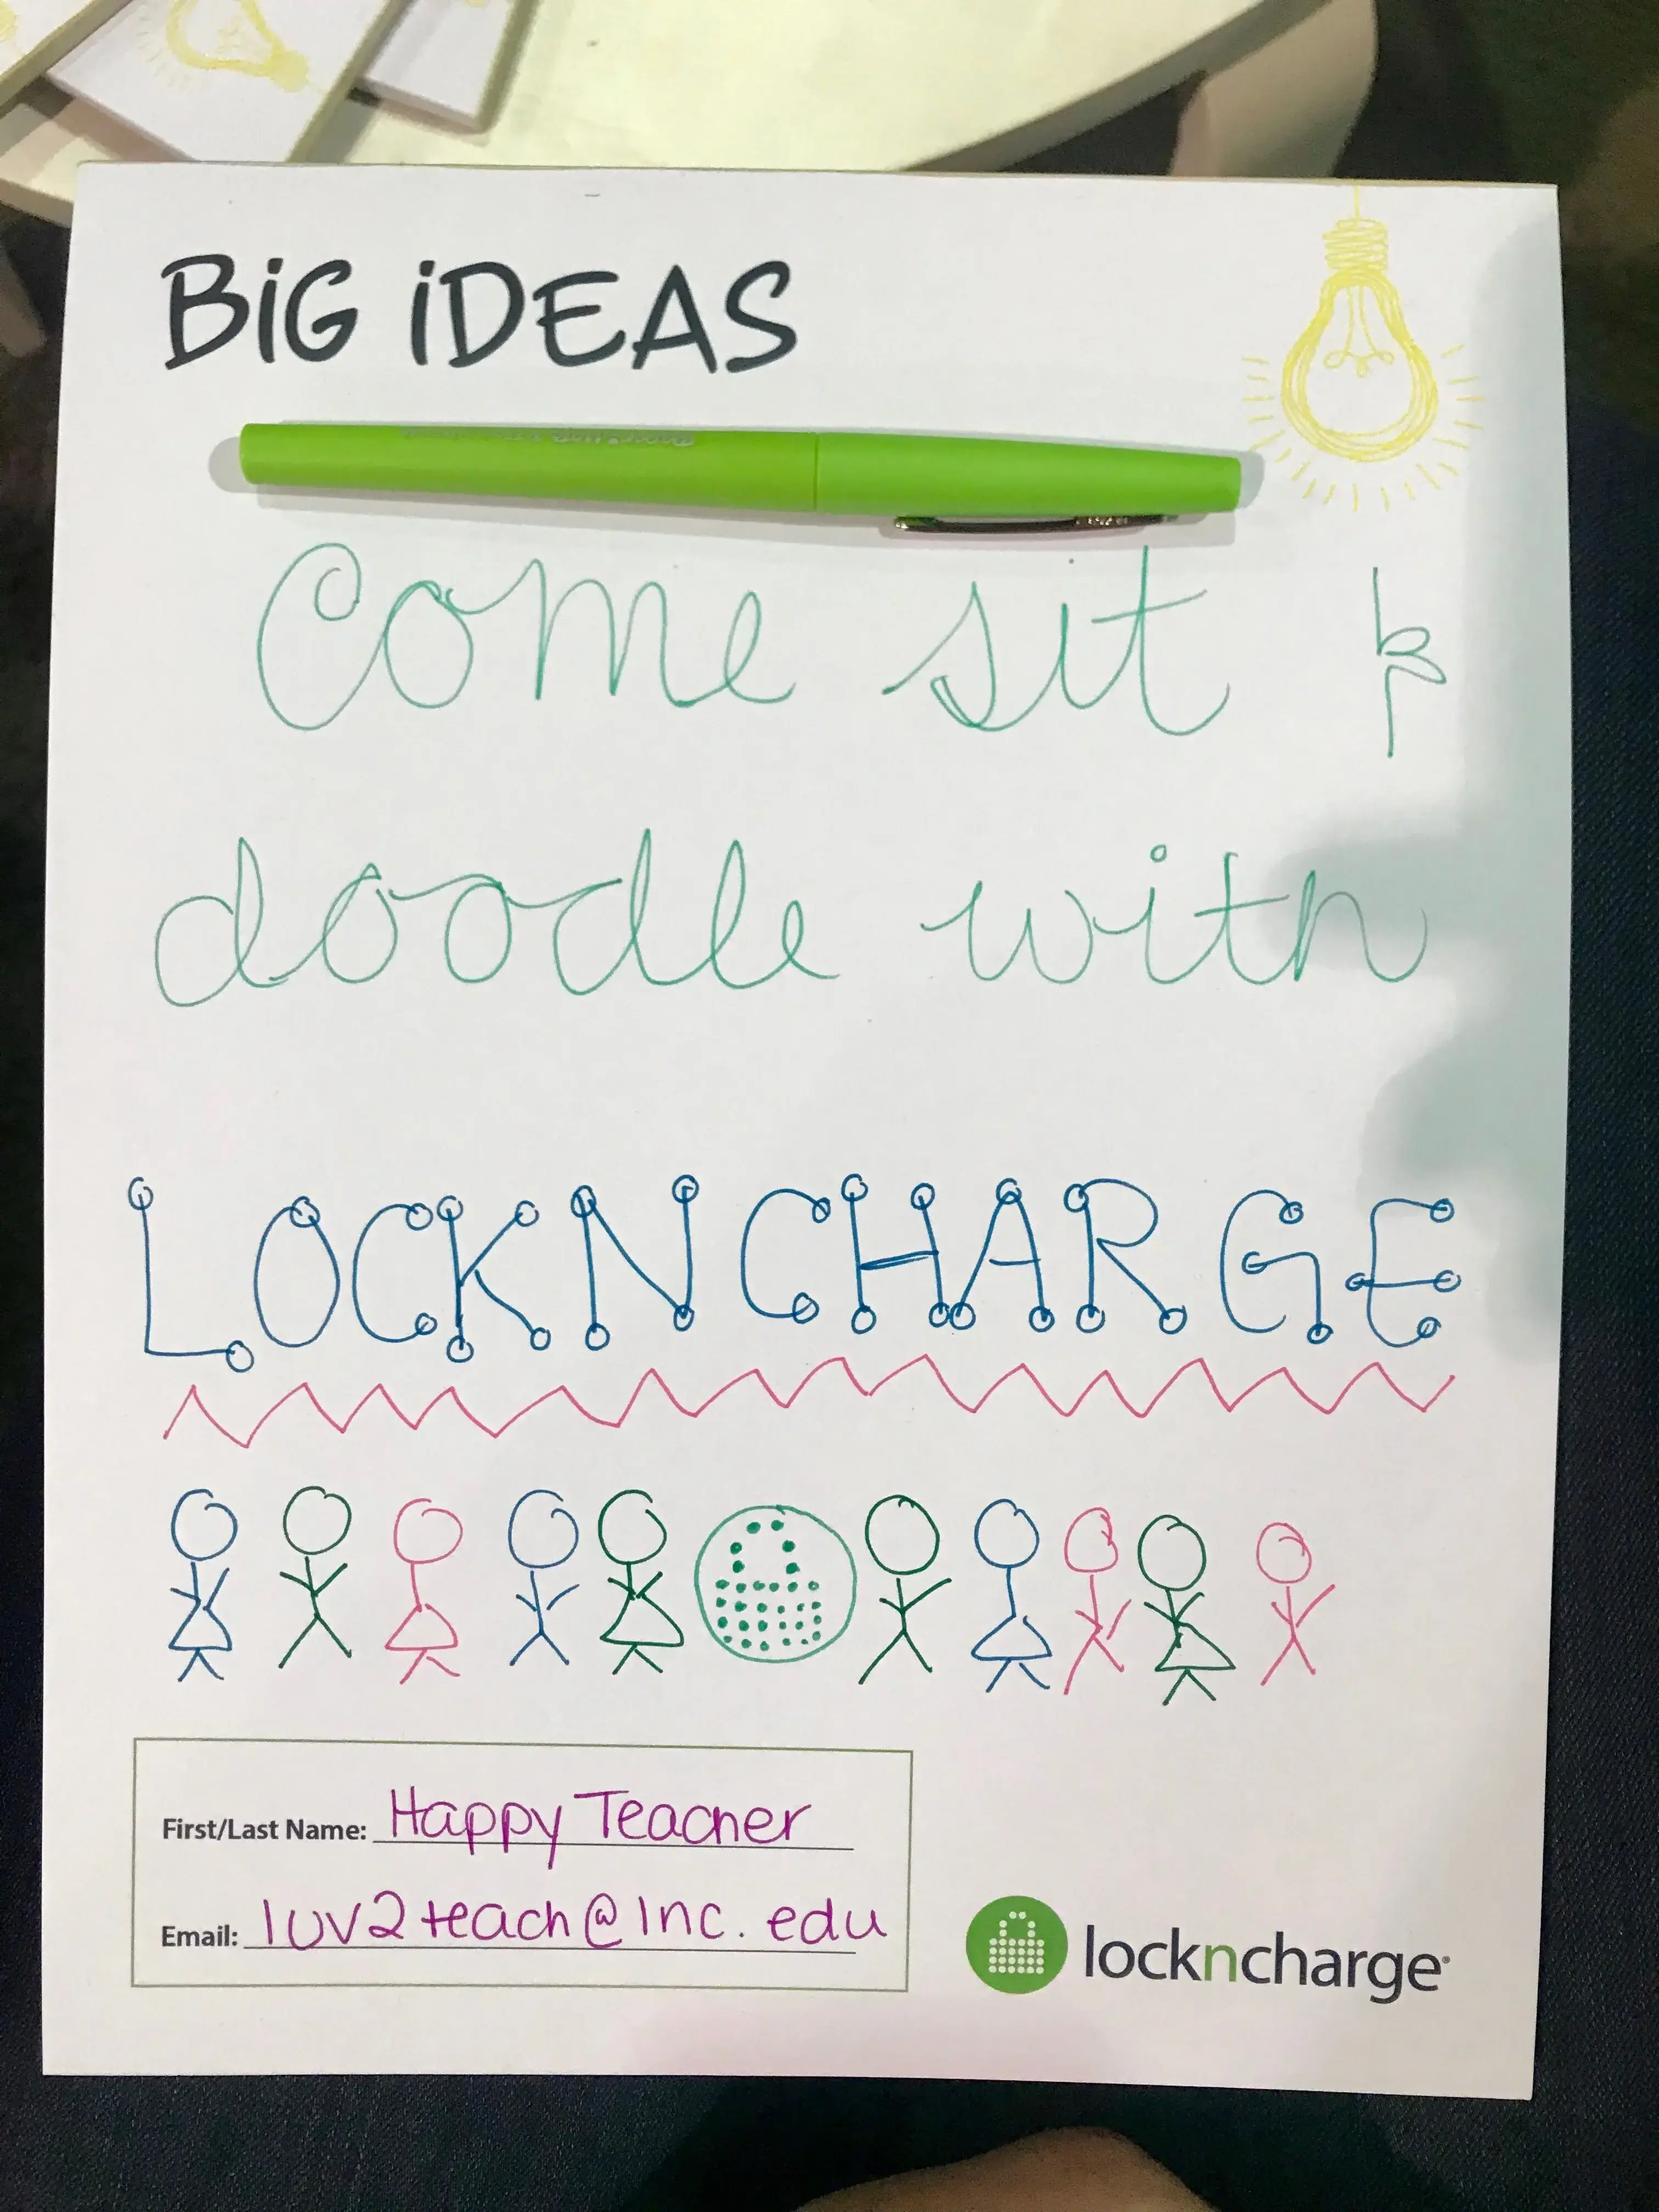 BiG iDEAS
Come sit &
doodle with
LOCKNCHARGE
First/Last Name: Happy Teacher
Email: luv2teach@lnc.edu
lockncharge